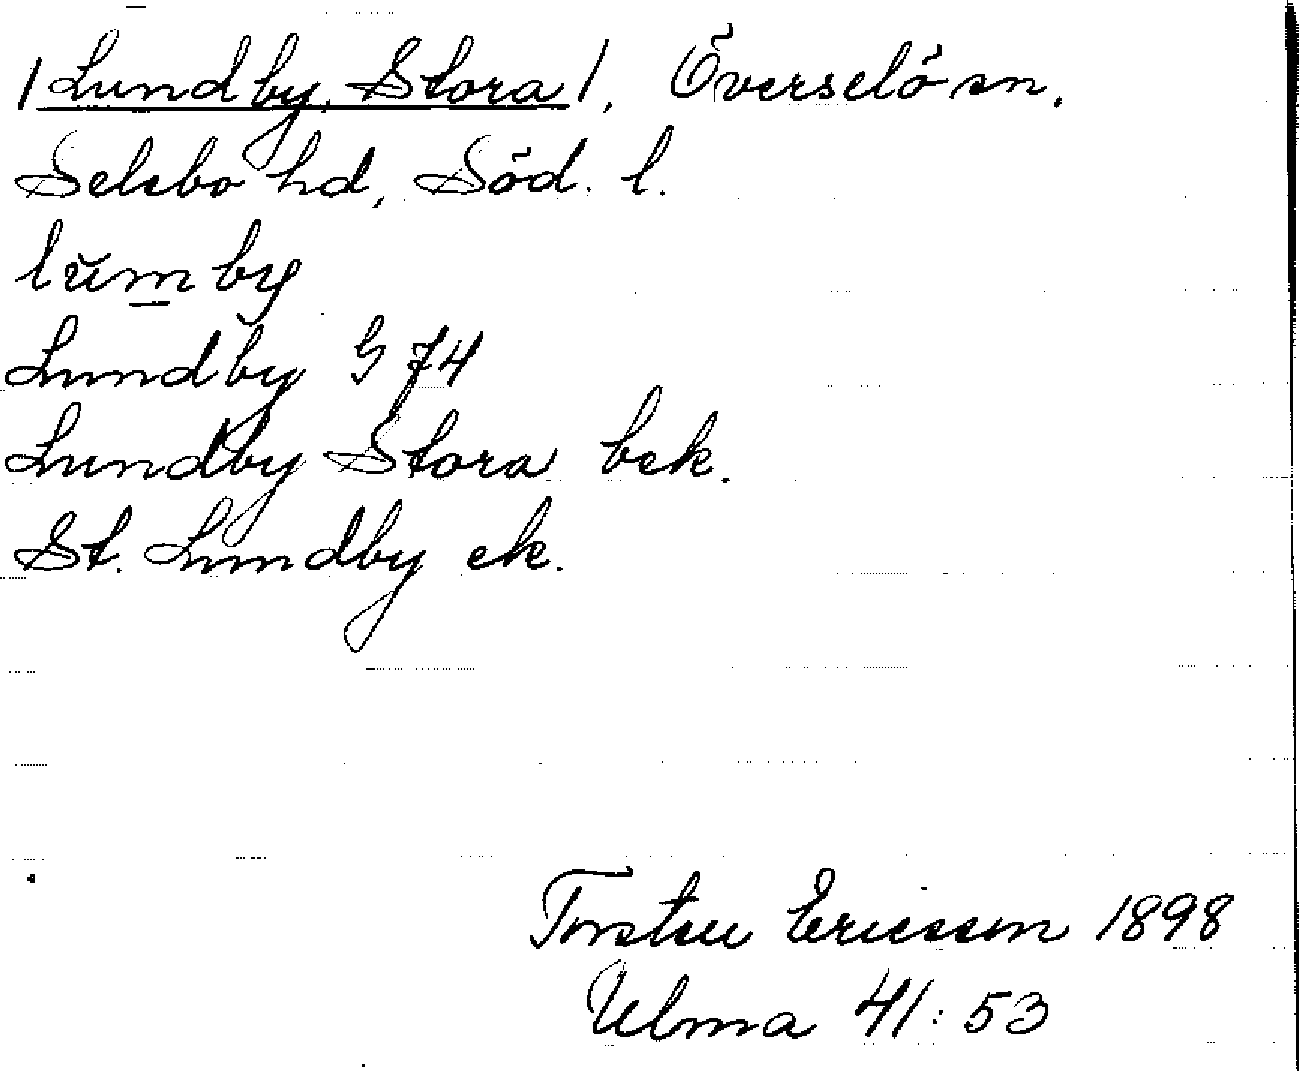 /Lundby, Stora/, Överselö sn.
Selebo hd, Söd. l.
lŭmby
Lundby G 74
Lundby Stora bek.
St. Lundby ek.
Torsten Ericsson 1898
Ulma 41:53